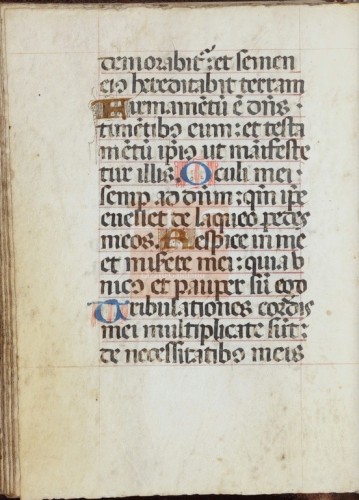 demorabit᷒: et semen
eiꝰ hereditabit terram
Firmamētū ē dn̄s ·
timētibꝰ eum: et testa
mētū ip̄iꝰ ut māifeste
tur illis. Oculi mei ·
semꝑ ad dn̄m: qm̄ ip̄e
euellet de laqueo pedes
meos. Aespice in me
et misere mei: quia v
nicꝰ et pauper sū ego
Tribulationes cordis
mei multiplicate sūt:
de necessitatibꝰ meis